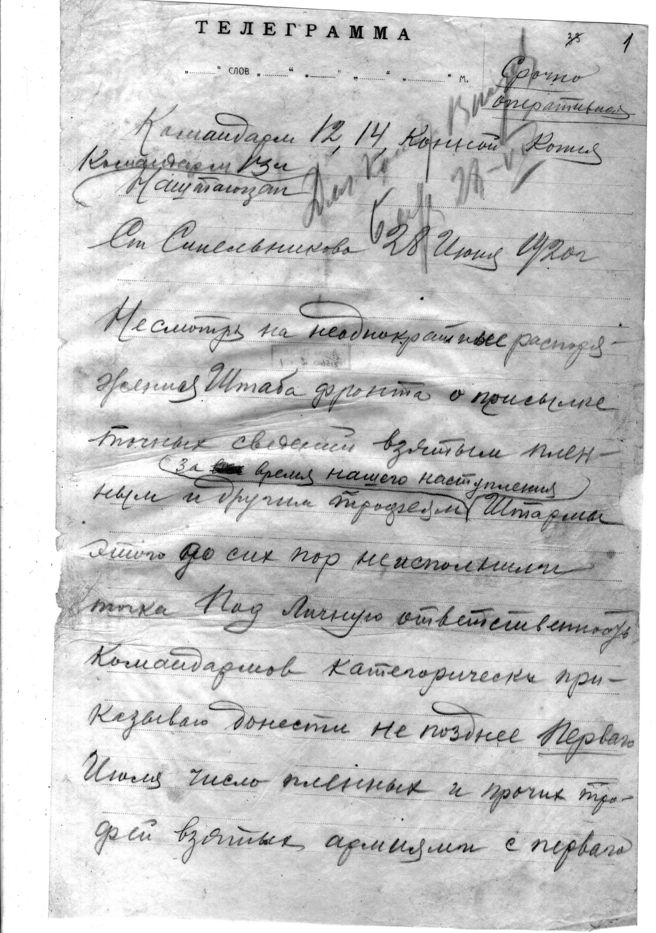 1
ТЕЛЕГРАММА
„......“ СЛОВ „......“ „......“ „......“ „......“ М.
Срочно
оперативная
Командарм 12, 14, Конной Копия
Командарм 13м
Наштаюзап
Ст Синельниково 28 Июня 1920г
Несмотря на неоднократные распоря-
жения Штаба фронта о присылке
точных сведений взятым плен-
за время нашего наступления
ным и другим трофеям Штармы
этого до сих пор неисполнили
точка Под личную ответственность
Командармов категорически при-
казываю донести не позднее Перваго
Июля число пленных и прочих тро-
фей взятых армиями с перваго